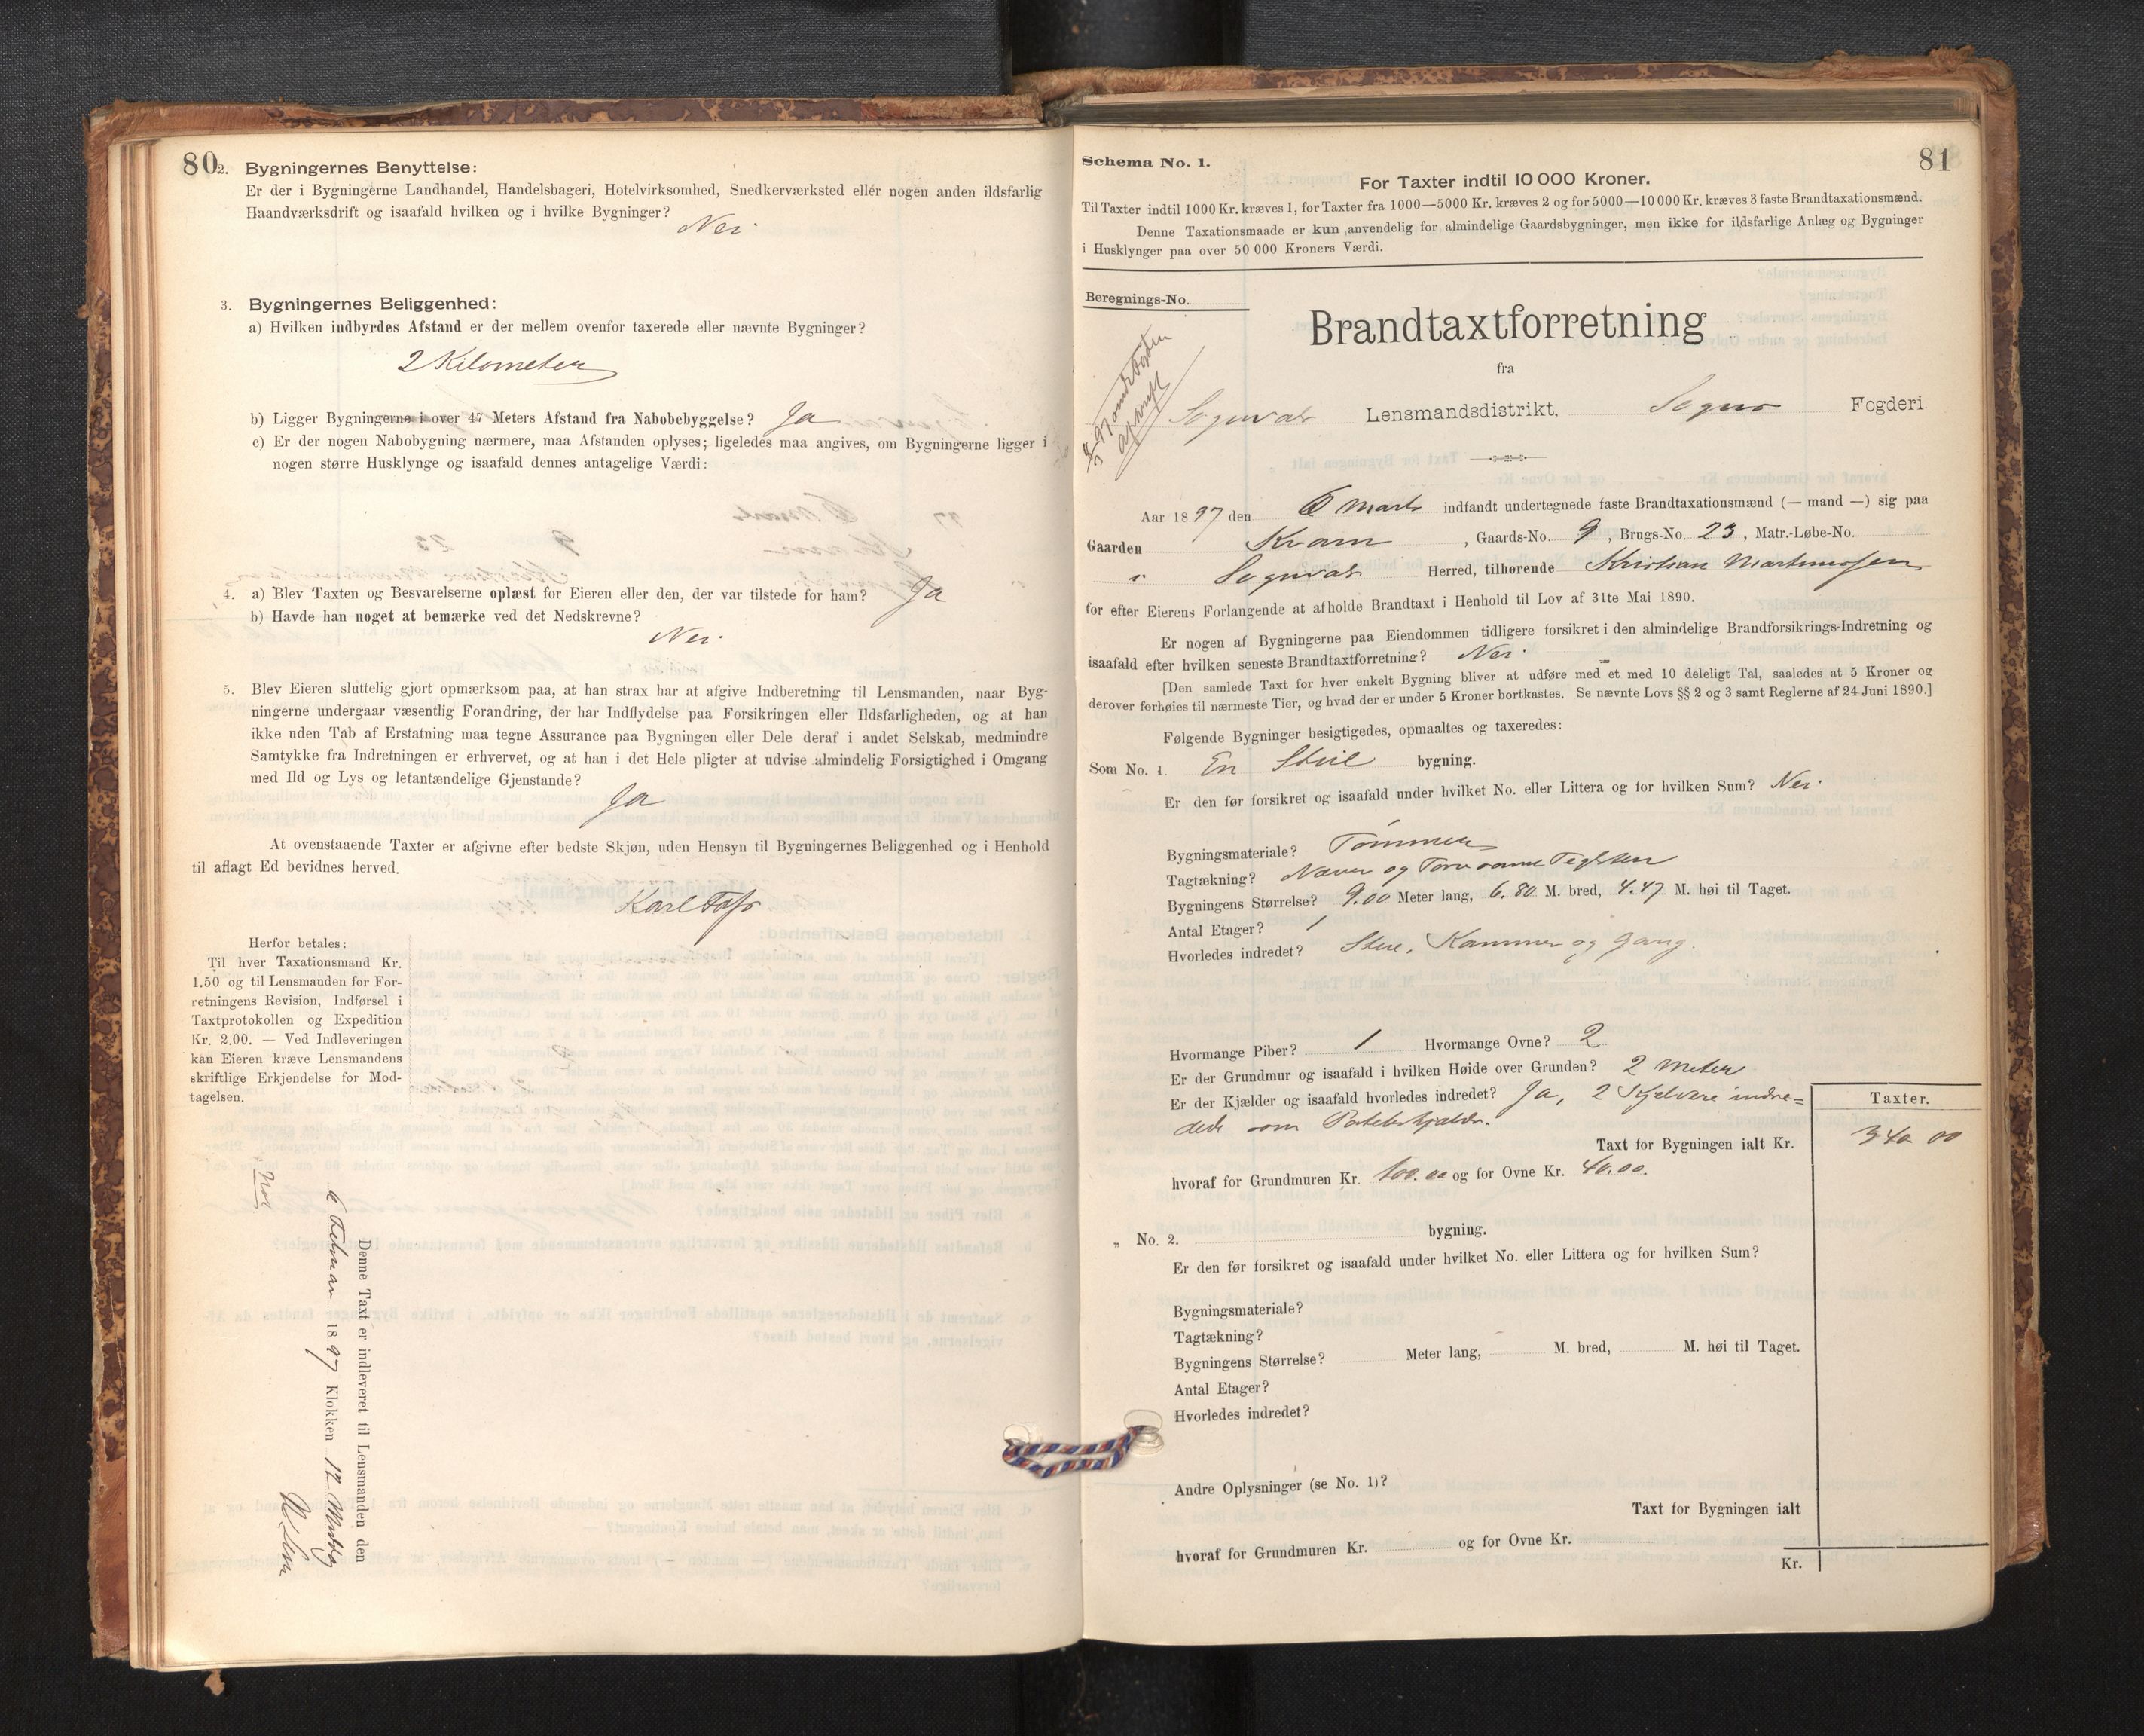 80
2. Bygningernes Benyttelse:
Er der i Bygningerne Landhandel, Handelsbageri, Hotelvirksomhed, Snedkerværksted ellér nogen anden ildsfarlig
Haandværksdrift og isaafald hvilken og i hvilke Bygninger?
Nei.
3. Bygningernes Beliggenhed:
a) Hvilken indbyrdes Afstand er der mellem ovenfor taxerede eller nævnte Bygninger?
2 Kilometer
b) Ligger Bygningerne i over 47 Meters Afstand fra Nabobebyggelse? Ja
c) Er der nogen Nabobygning nærmere, maa Afstanden oplyses; ligeledes maa angives, om Bygningerne ligger i
nogen større Husklynge og isaafald dennes antagelige Værdi:
4. a) Blev Taxten og Besvarelserne oplæst for Eieren eller den, der var tilstede for ham? Ja
b) Havde han noget at bemærke ved det Nedskrevne?
Nei.
5. Blev Eieren sluttelig gjort opmærksom paa, at han strax har at afgive Indberetning til Lensmanden, naar Byg-
ningerne undergaar væsentlig Forandring, der har Indflydelse paa Forsikringen eller Ildsfarligheden, og at han
ikke uden Tab af Erstatning maa tegne Assurance paa Bygningen eller Dele deraf i andet Selskab, medmindre
Samtykke fra Indretningen er erhvervet, og at han i det Hele pligter at udvise almindelig Forsigtighed i Omgang
med Ild og Lys og letantændelige Gjenstande?
Ja
At ovenstaaende Taxter er afgivne efter bedste Skjøn, uden Hensyn til Bygningernes Beliggenhed og i Henhold
til aflagt Ed bevidnes herved.
Karl
Herfor betales:
Til hver Taxationsmand Kr.
1.50 og til Lensmanden for For-
retningens Revision, Indførsel i
Taxtprotokollen og Expedition
Kr. 2.00. — Ved Indleveringen
kan Eieren kræve Lensmandens
skriftlige Erkjendelse for Mod-
tagelsen.
Denne Taxt er indleveret til Lensmanden den
6 Februar 1897 Klokken 12 Middag
81
Schema No. 1.
For Taxter indtil 10 000 Kroner.
Til Taxter indtil 1000 Kr. kræves 1, for Taxter fra 1000—5000 Kr. kræves 2 og for 5000—10 000 Kr. kræves 3 faste Brandtaxationsmænd.
Denne Taxationsmaade er kun anvendelig for almindelige Gaardsbygninger, men ikke for ildsfarlige Anlæg og Bygninger
i Husklynger paa over 50 000 Kroners Værdi.
Beregnings-No.
Brandtaxtforretning
fra
Lensmandsdistrikt, Fogderi
Aar 1897 den 6 Marts indfandt undertegnede faste Brandtaxationsmænd (— mand —) sig paa
Gaarden Kvam, Gaards-No. 9, Brugs-No. 23, Matr.-Løbe-No.
i Herred, tilhørende Kristian Martinussen
for efter Eierens Forlangende at afholde Brandtaxt i Henhold til Lov af 31te Mai 1890.
Er nogen af Bygningerne paa Eiendommen tidligere forsikret i den almindelige Brandforsikrings-Indretning og
isaafald efter hvilken seneste Brandtaxtforretning? Nei.
[Den samlede Taxt for hver enkelt Bygning bliver at udføre med et med 10 deleligt Tal, saaledes at 5 Kroner og
derover forhøies til nærmeste Tier, og hvad der er under 5 Kroner bortkastes. Se nævnte Lovs §§ 2 og 3 samt Reglerne af 24 Juni 1890.]
Følgende Bygninger besigtigedes, opmaaltes og taxeredes:
Som No. 1. En bygning.
Er den før forsikret og isaafald under hvilket No. eller Littera og for hvilken Sum? Nei.
Bygningsmateriale? Tømmer
Tagtækning? Næver og Torv samt Teglsten
Bygningens Størrelse? 9.00 Meter lang, 6.80 M. bred, 4.47 M. høi til Taget.
Antal Etager? 1
Hvorledes indredet? Stue, Kammer og gang.
Hvormange Piber? 1 Hvormange Ovne? 2
Er der Grundmur og isaafald i hvilken Høide over Grunden? 2 meter
Er der Kjælder og isaafald hvorledes indredet? Ja, 2 Kjelvere indre=
dede som Potetetkjælder.
Taxter.
Taxt for Bygningen ialt Kr. 340 00
hvoraf for Grundmuren Kr. 100.00 og for Ovne Kr. 40.00.
„ No. 2. bygning.
Er den før forsikret og isaafald under hvilket No. eller Littera og for hvilken Sum?
Bygningsmateriale?
Tagtækning?
Bygningens Størrelse? Meter lang, M. bred, M. høi til Taget.
Antal Etager?
Hvorledes indredet?
Andre Oplysninger (se No. 1)?
Taxt for Bygningen ialt
hvoraf for Grundmuren Kr. og for Ovne Kr.
Kr.